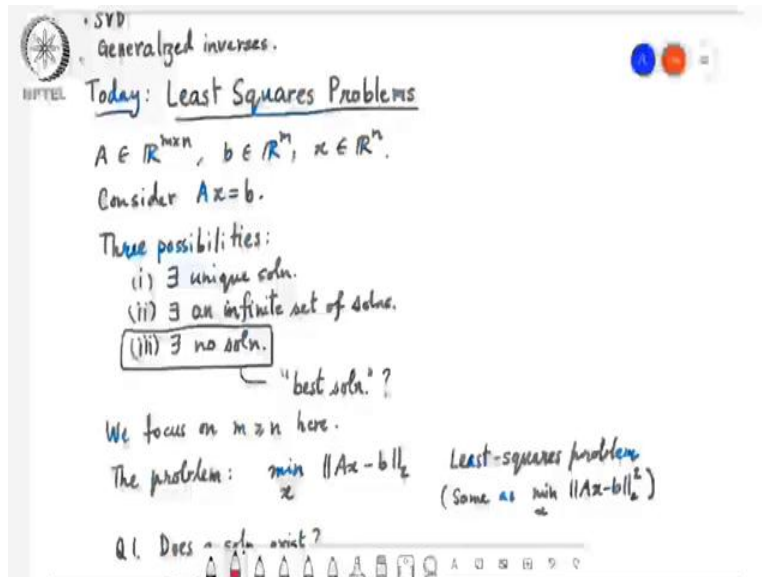 • SVD
• Generalized inverses.
NPTEL
Today: Least Squares Problems
A ∈ ℝ^{m×n}, b ∈ ℝ^m, x ∈ ℝ^n.
Consider Ax = b.
Three possibilities:
(i) ∃ unique soln.
(ii) ∃ an infinite set of solns.
(iii) ∃ no soln.
"best soln." ?
We focus on m ≥ n here.
The problem: min_x ||Ax - b||_2 Least-squares problem
(Same as min_x ||Ax-b||_2^2)
Q1. Does a soln exist?